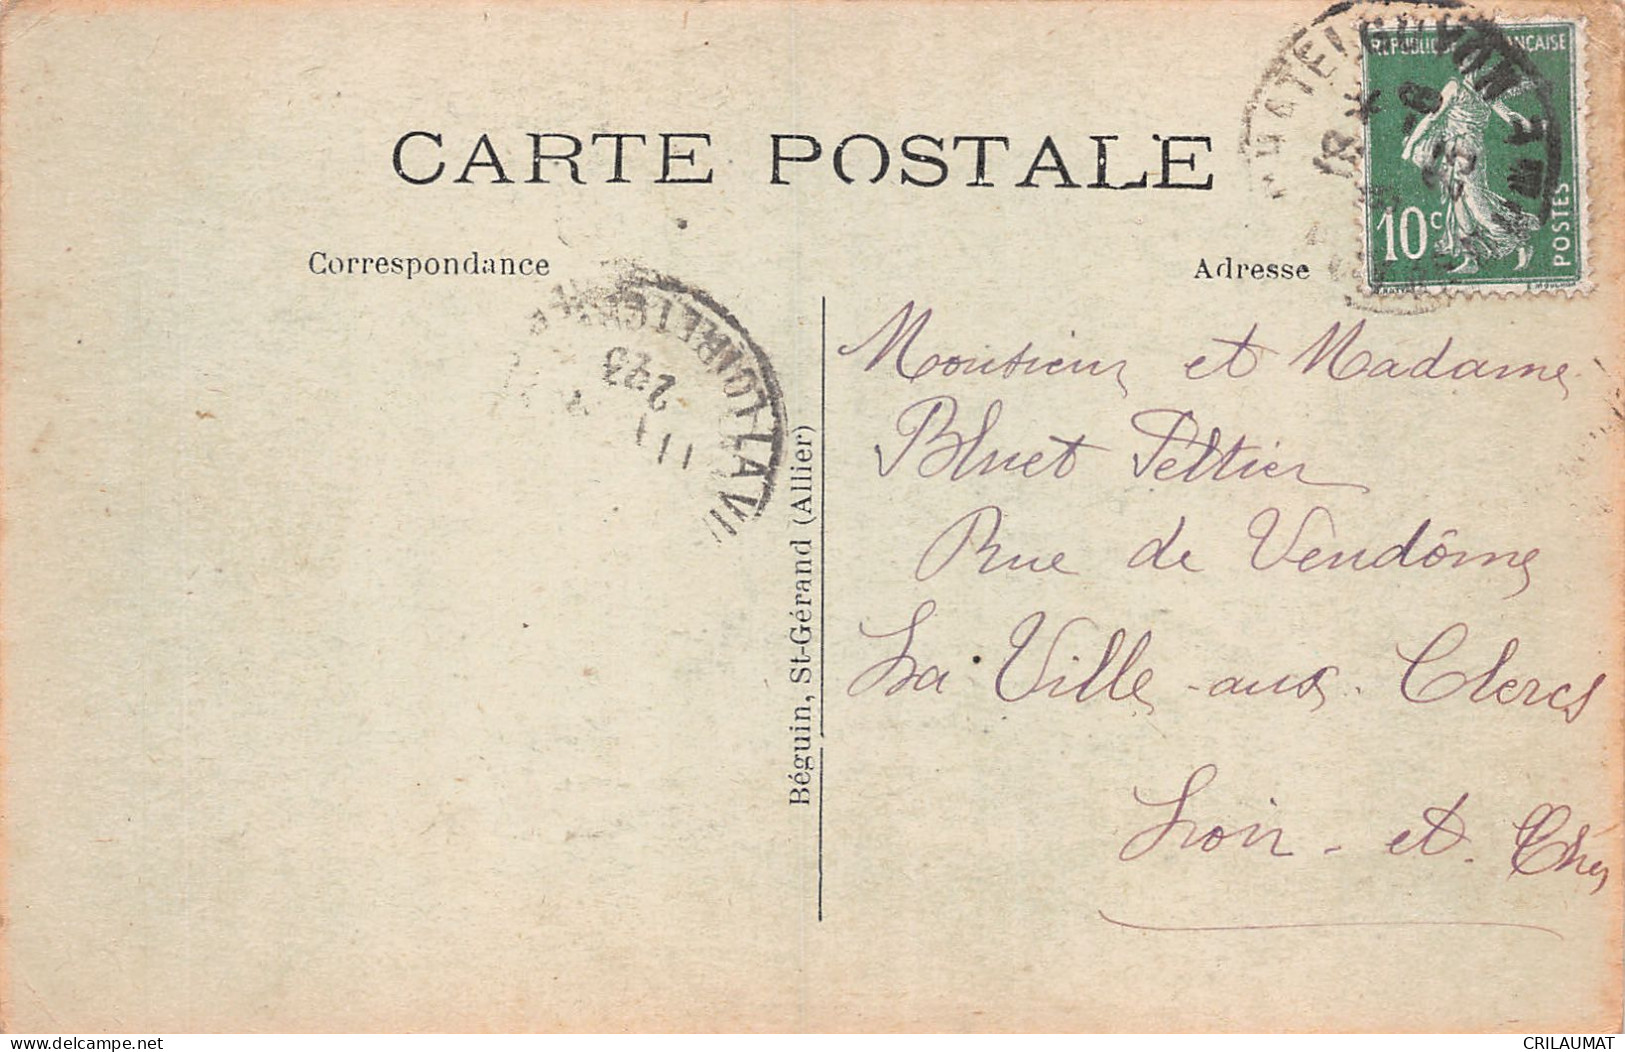 CARTE POSTALE
Correspondance
Adresse
REPUBLIQUE FRANÇAISE
10c
POSTES
CHATELGUYON
LA VI LOIR ET CHER
11
2-23
Béguin, St-Gérand (Allier)
Monsieur et Madame
Bluet Peltier
Rue de Vendôme
La Ville-aux-Clercs
Loir-et-Cher
delcampe.net
CRILAUMAT